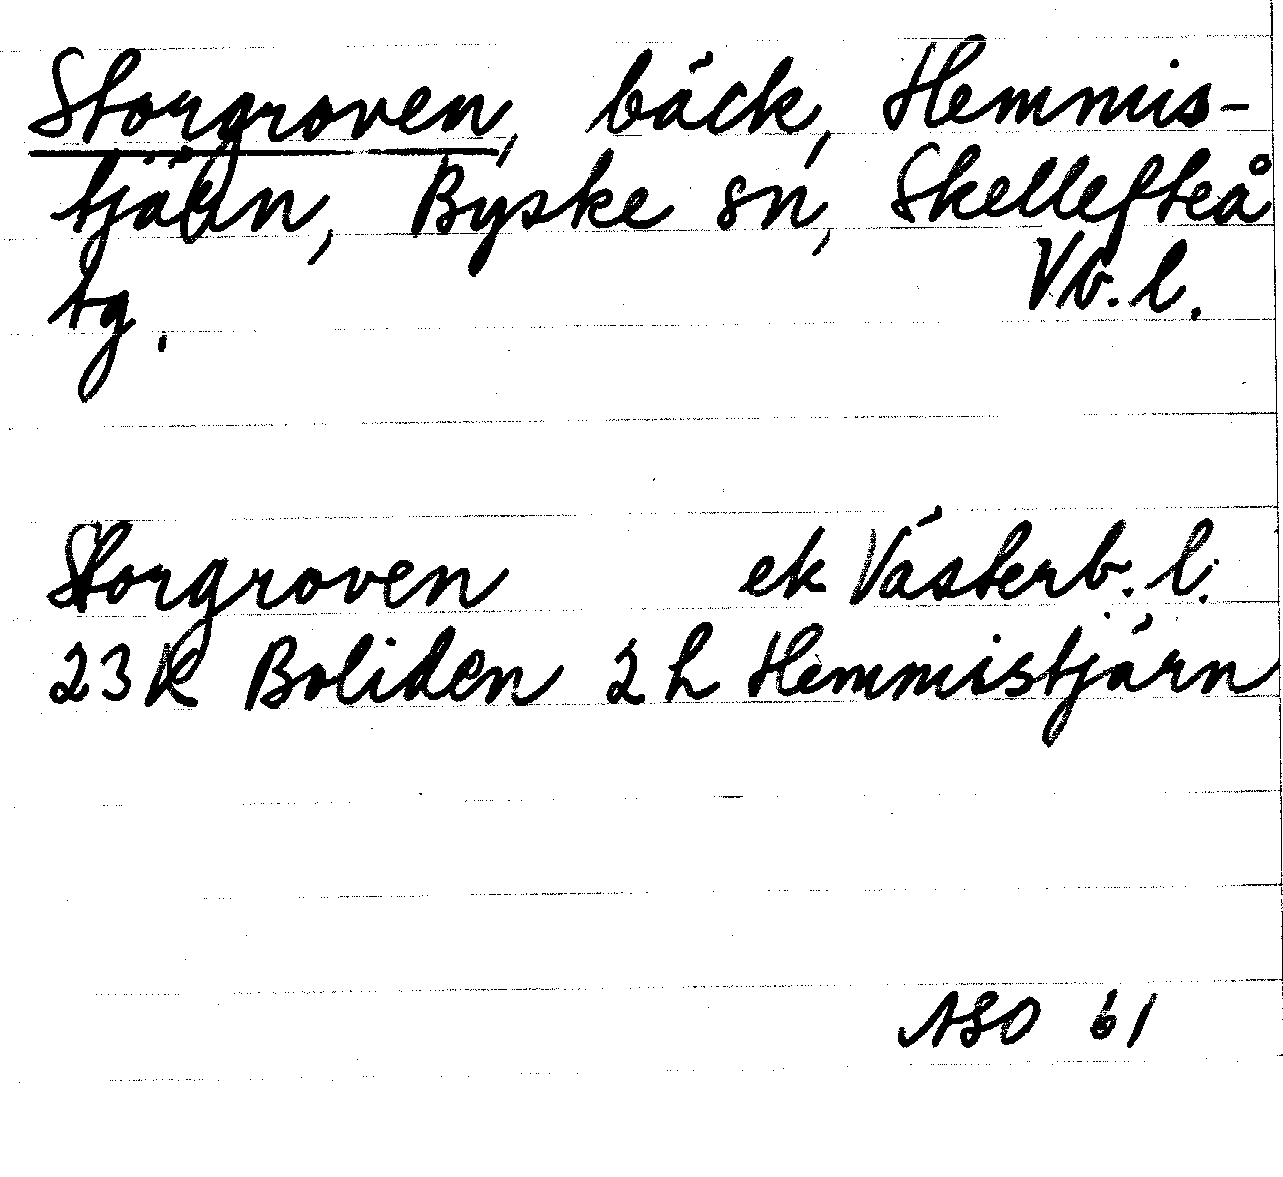 Storgroven, bäck, Hemmis-
tjärn, Byske sn, Skellefteå
tg. Vb. l.
Storgroven ek Västerb. l.
23 K Boliden 2 h Hemmistjärn
ASO 61